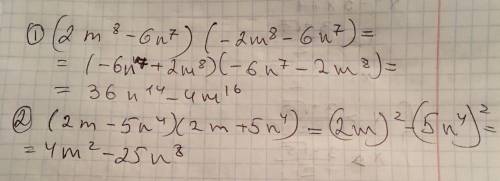 ① (2m⁸-6n⁷)(-2m⁸-6n⁷)=
=(-6n⁷+2m⁸)(-6n⁷-2m⁸)=
= 36n¹⁴-4m¹⁶
② (2m-5n⁴)(2m+5n⁴)=(2m)²-(5n⁴)²=
=4m²-25n⁸